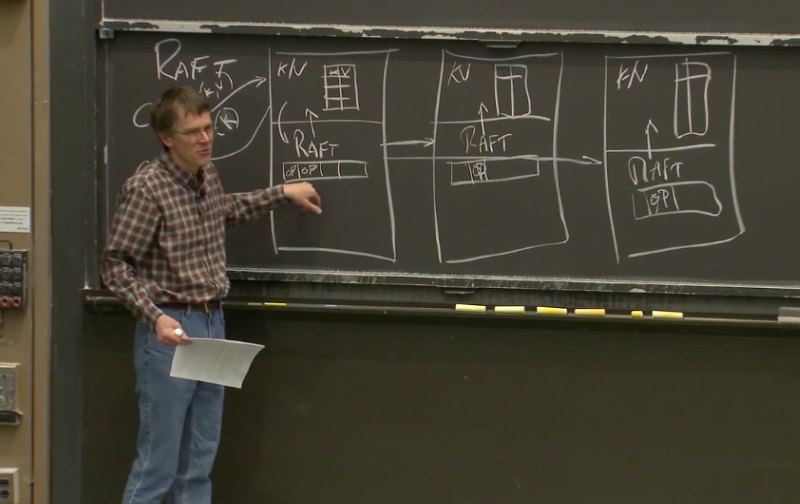 RAFT
KV
C
K
KV
KV
RAFT
OP OP
KV
RAFT
OP
KV
RAFT
OP